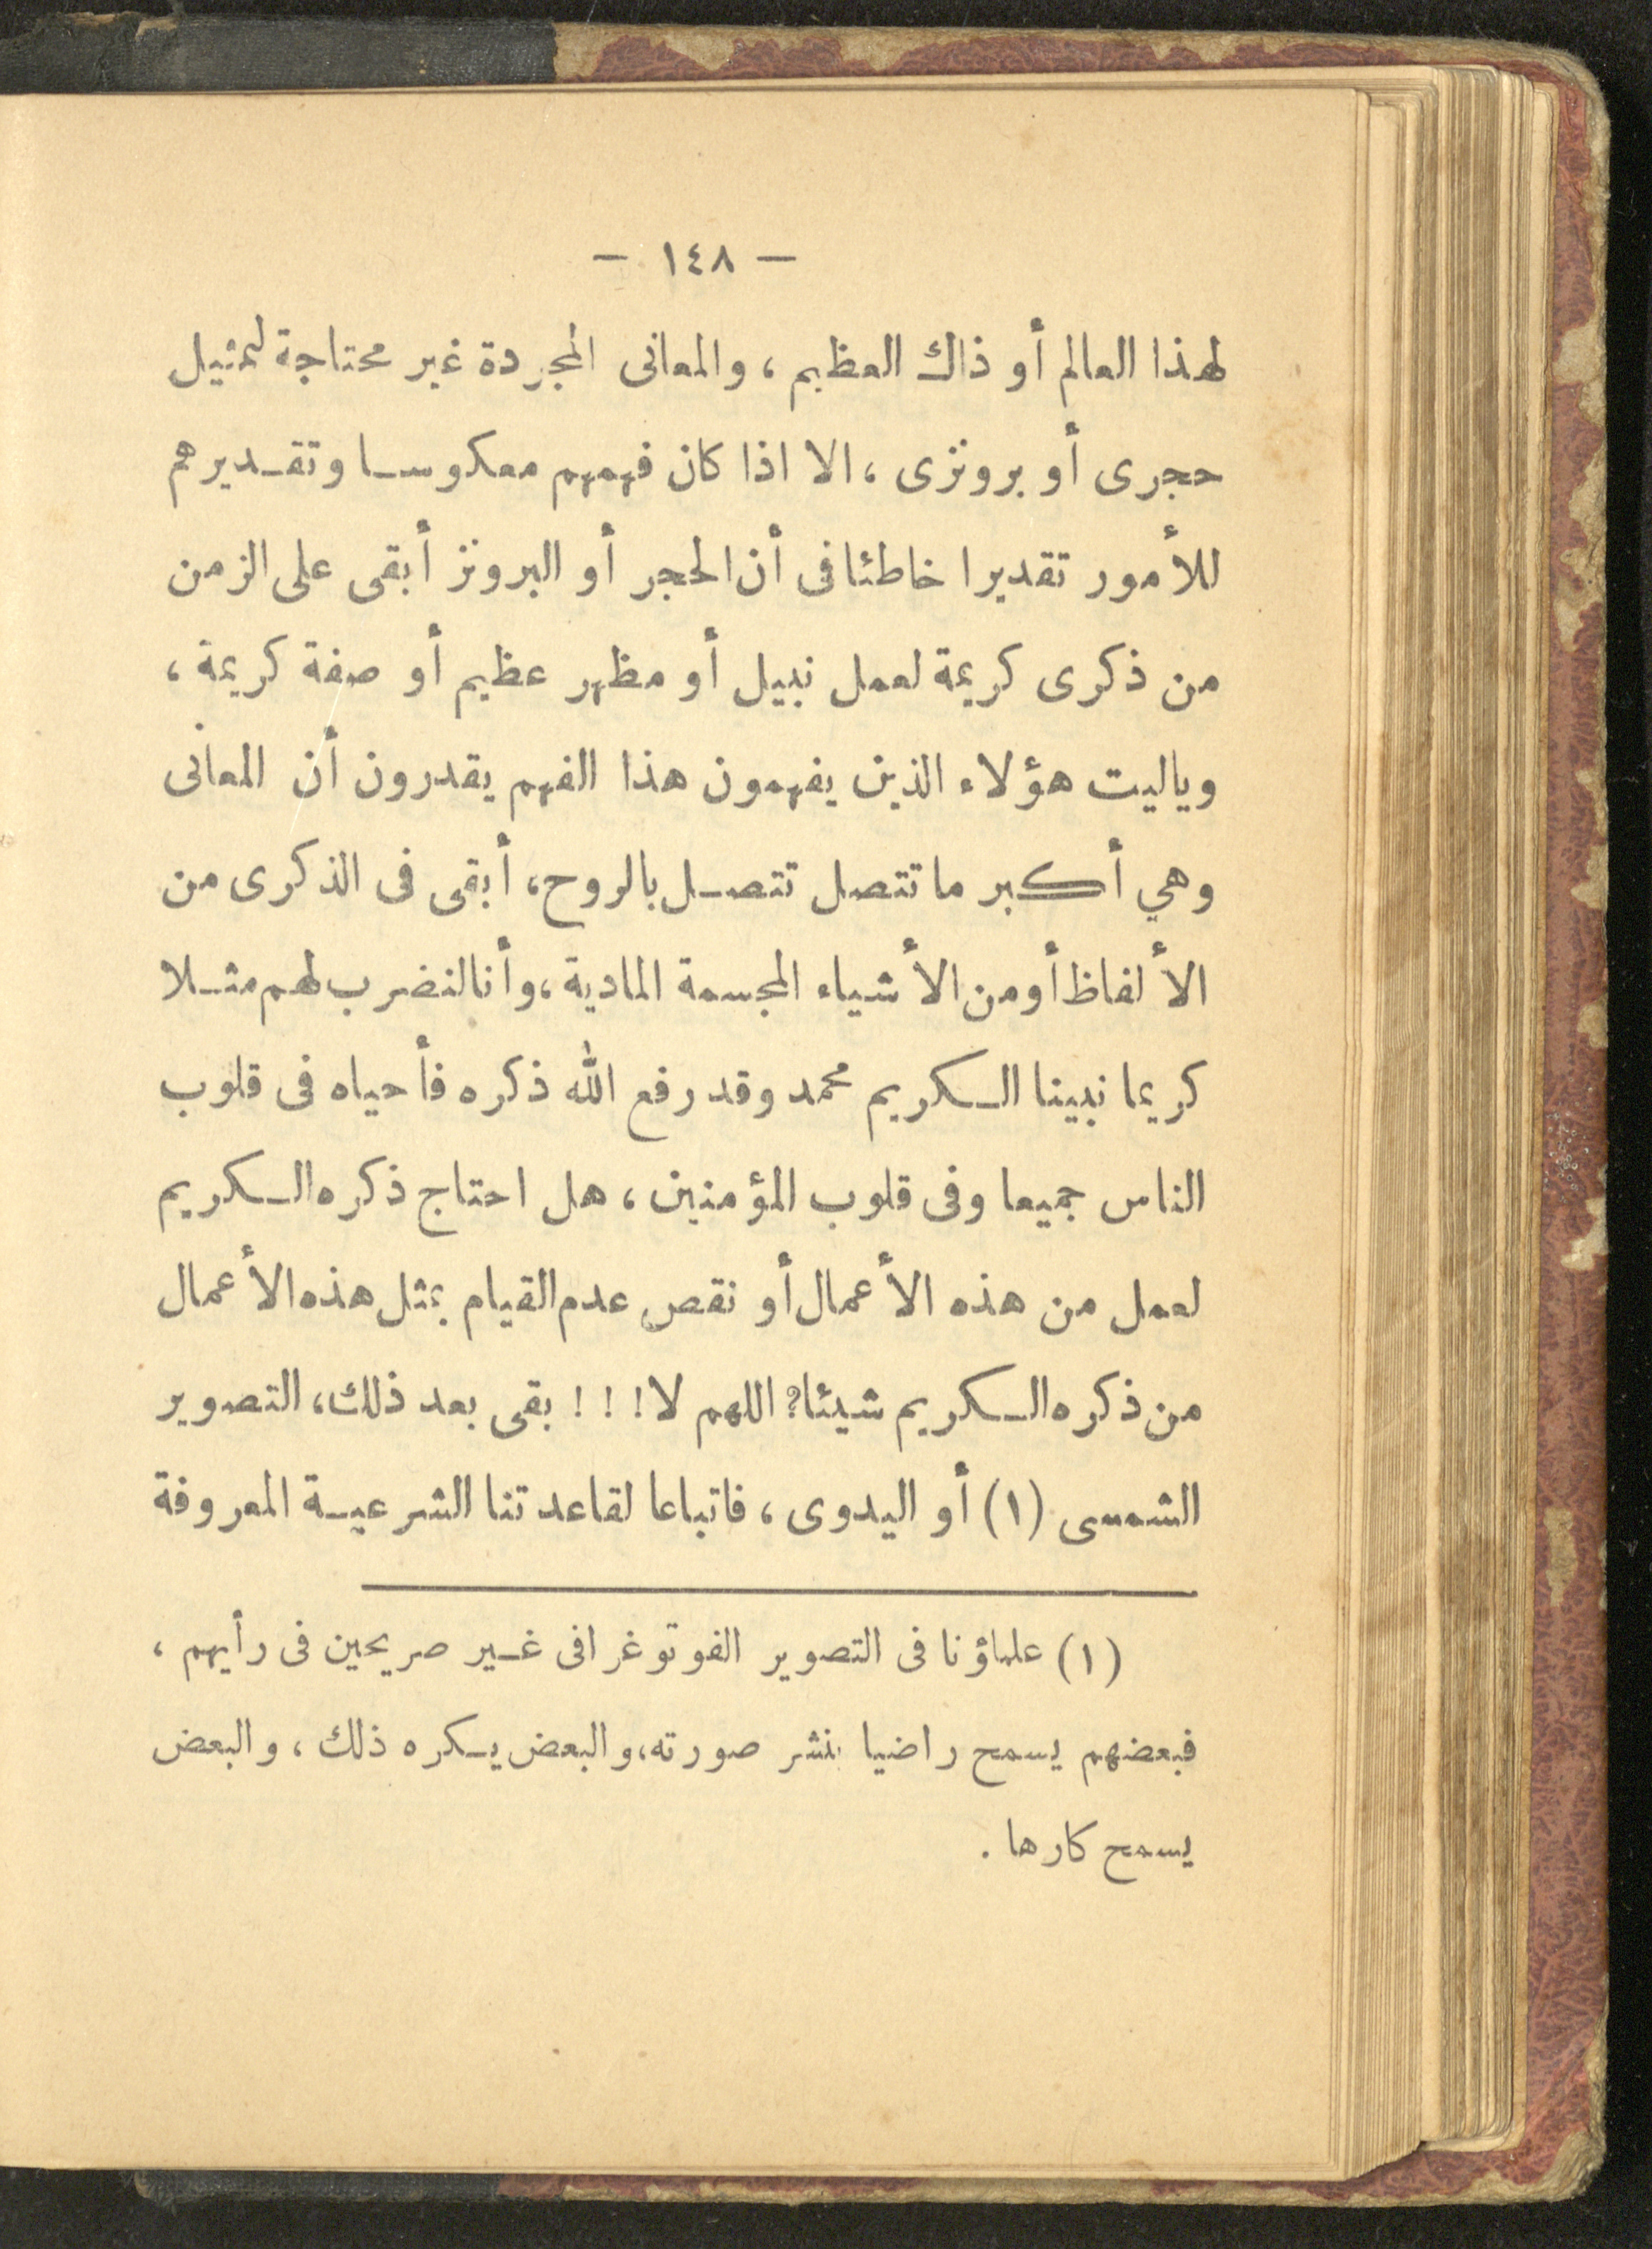 — ١٤٨ —
لهذا العالم أو ذاك العظيم ، والمعانى المجردة غير محتاجة لتمثيل
حجرى أو برونزى ، الا اذا كان فهمهم معكوسا وتقديرهم
للأمور تقديرا خاطئا فى أن الحجر أو البرونز أبقى على الزمن
من ذكرى كريمة لعمل نبيل أو مظهر عظيم أو صفة كريمة ،
وياليت هؤلاء الذين يفهمون هذا الفهم يقدرون أن المعانى
وهي أكبر ما تتصل تتصل بالروح، أبقى فى الذكرى من
الألفاظ أو من الأشياء المجسمة المادية ، وأنا لنضرب لهم مثلا
كريما نبينا الكريم محمد وقد رفع الله ذكره فأحياه فى قلوب
الناس جميعا وفى قلوب المؤمنين ، هل احتاج ذكره الكريم
لعمل من هذه الأعمال أو نقص عدم القيام بمثل هذه الأعمال
من ذكره الكريم شيئا؟ اللهم لا ! ! ! بقى بعد ذلك، التصوير
الشمسى (١) أو اليدوى ، فاتباعا لقاعدتنا الشرعية المعروفة
(١) علماؤنا فى التصوير الفوتوغرافى غير صريحين فى رأيهم ،
فبعضهم يسمح راضيا بنشر صورته، والبعض يكره ذلك ، والبعض
يسمح كارها .